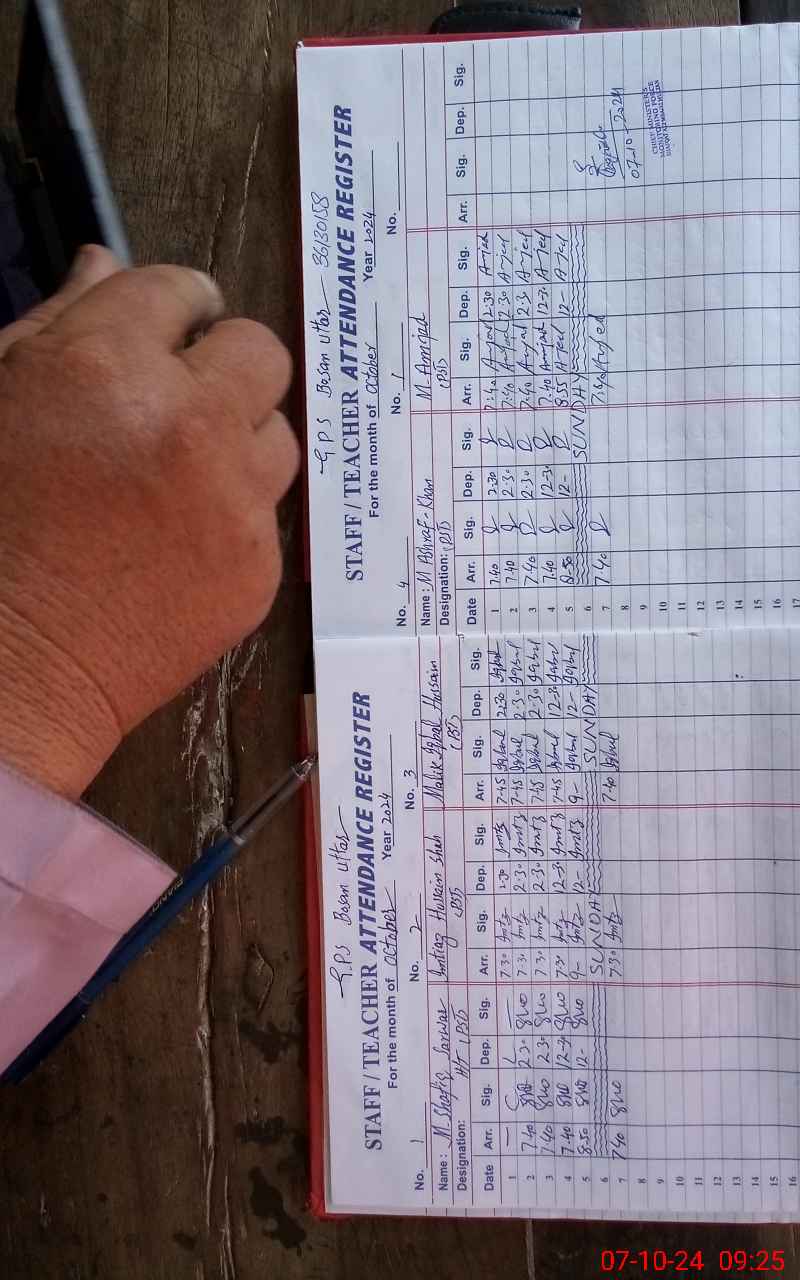 G.P.S Bosan Uttar
STAFF / TEACHER ATTENDANCE REGISTER
For the month of October Year 2024
No. 1 No. 2 No. 3
Name: M. Shafiq Sarwar Imtiaz Hussain Shah Malik Iqbal Hussain
Designation: H/T (PST) (PST) (PST)
Date Arr. Sig. Dep. Sig. Arr. Sig. Dep. Sig. Arr. Sig. Dep. Sig.
1 — — 7-30 Imtz 2-30 Imtz 7-45 Iqbal 2-30 Iqbal
2 7-40 2-30 7-30 Imtz 2-30 Imtz 7-45 Iqbal 2-30 Iqbal
3 7-40 2-30 7-30 Imtz 2-30 Imtz 7-45 Iqbal 2-30 Iqbal
4 7-40 12-30 7-30 Imtz 12-30 Imtz 7-45 Iqbal 12-30 Iqbal
5 8-50 12- 9- Imtz 12- Imtz 9- Iqbal 12- Iqbal
6 SUNDAY SUNDAY
7 7-40 7-30 Imtz 7-40 Iqbal
8
9
10
11
12
13
14
15
16
G.P.S Bosan Uttar 36130158
STAFF / TEACHER ATTENDANCE REGISTER
For the month of October Year 2024
No. 4 No. 1 No.
Name: M Ashraf Khan M. Amjad
Designation: (PST) (PST)
Date Arr. Sig. Dep. Sig. Arr. Sig. Dep. Sig. Arr. Sig. Dep. Sig.
1 7.40 2.30 7.40 Amjad 2.30 Amjad
2 7.40 2.30 7.40 Amjad 2.30 Amjad
3 7.40 2.30 7.40 Amjad 2.30 Amjad
4 7.40 12-30 7.40 Amjad 12-30 Amjad
5 8.50 12- 8.55 Amjad 12- Amjad
6 SUNDAY
7 7.40 7.40 Amjad
07-10-2024
CHIEF MINISTER'S
MONITORING FORCE
8
9
10
11
12
13
14
15
16
17
07-10-24 09:25